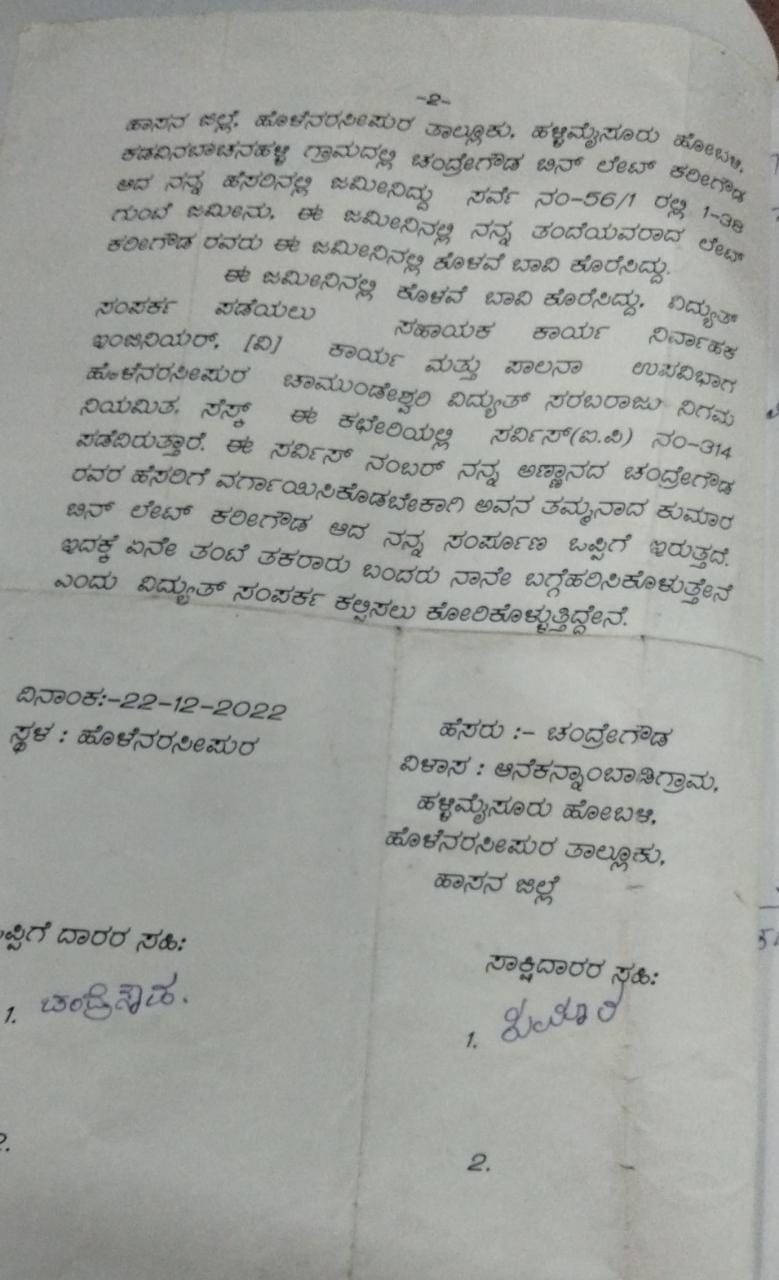 -2-
ಹಾಸನ ಜಿಲ್ಲೆ, ಹೊಳೆನರಸೀಪುರ ತಾಲ್ಲೂಕು, ಹಳ್ಳಿಮೈಸೂರು ಹೋಬಳಿ,
ಕಡವಿನಬಾಚನಹಳ್ಳಿ ಗ್ರಾಮದಲ್ಲಿ ಚಂದ್ರೇಗೌಡ ಬಿನ್ ಲೇಟ್ ಕರೀಗೌಡ
ಆದ ನನ್ನ ಹೆಸರಿನಲ್ಲಿ ಜಮೀನಿದ್ದು ಸರ್ವೆ ನಂ-56/1 ರಲ್ಲಿ 1-38
ಗುಂಟೆ ಜಮೀನು, ಈ ಜಮೀನಿನಲ್ಲಿ ನನ್ನ ತಂದೆಯವರಾದ ಲೇಟ್
ಕರೀಗೌಡ ರವರು ಈ ಜಮೀನಿನಲ್ಲಿ ಕೊಳವೆ ಬಾವಿ ಕೊರೆಸಿದ್ದು.
ಈ ಜಮೀನಿನಲ್ಲಿ ಕೊಳವೆ ಬಾವಿ ಕೊರೆಸಿದ್ದು, ವಿದ್ಯುತ್
ಸಂಪರ್ಕ ಪಡೆಯಲು ಸಹಾಯಕ ಕಾರ್ಯ ನಿರ್ವಾಹಕ
ಇಂಜಿನಿಯರ್, [ವಿ] ಕಾರ್ಯ ಮತ್ತು ಪಾಲನಾ ಉಪವಿಭಾಗ
ಹೊಳೆನರಸೀಪುರ ಚಾಮುಂಡೇಶ್ವರಿ ವಿದ್ಯುತ್ ಸರಬರಾಜು ನಿಗಮ
ನಿಯಮಿತ, ಸೆಸ್ಕ್ ಈ ಕಛೇರಿಯಲ್ಲಿ ಸರ್ವಿಸ್(ಐ.ಪಿ) ನಂ-314
ಪಡೆದಿರುತ್ತಾರೆ. ಈ ಸರ್ವಿಸ್ ನಂಬರ್ ನನ್ನ ಅಣ್ಣಾನದ ಚಂದ್ರೇಗೌಡ
ರವರ ಹೆಸರಿಗೆ ವರ್ಗಾಯಿಸಿಕೊಡಬೇಕಾಗಿ ಅವನ ತಮ್ಮನಾದ ಕುಮಾರ
ಬಿನ್ ಲೇಟ್ ಕರೀಗೌಡ ಆದ ನನ್ನ ಸಂರ್ಪೂಣ ಒಪ್ಪಿಗೆ ಇರುತ್ತದೆ.
ಇದಕ್ಕೆ ಏನೇ ತಂಟೆ ತಕರಾರು ಬಂದರು ನಾನೇ ಬಗ್ಗೆಹರಿಸಿಕೊಳುತ್ತೇನೆ
ಎಂದು ವಿದ್ಯುತ್ ಸಂಪರ್ಕ ಕಲ್ಪಿಸಲು ಕೋರಿಕೊಳ್ಳುತ್ತಿದ್ದೇನೆ.
ದಿನಾಂಕ:-22-12-2022
ಸ್ಥಳ : ಹೊಳೆನರಸೀಪುರ
ಹೆಸರು :- ಚಂದ್ರೇಗೌಡ
ವಿಳಾಸ : ಆನೆಕನ್ನಾಂಬಾಡಿಗ್ರಾಮ,
ಹಳ್ಳಿಮೈಸೂರು ಹೋಬಳಿ,
ಹೊಳೆನರಸೀಪುರ ತಾಲ್ಲೂಕು,
ಹಾಸನ ಜಿಲ್ಲೆ
ಪ್ಪಿಗೆ ದಾರರ ಸಹಿ:
1. ಚಂದ್ರೆಗೌಡ.
ಸಾಕ್ಷಿದಾರರ ಸಹಿ:
1. ಕುಮಾರ
2.